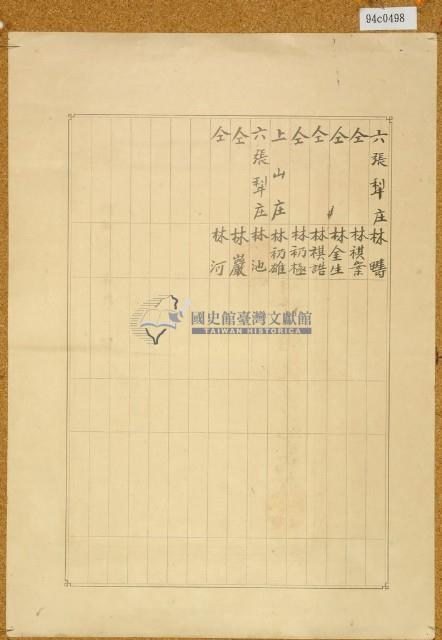 94c0498
六張犁庄 林疇
仝 林祺榮
仝 林金生
仝 林祺誥
仝 林礽極
上山庄 林礽雄
六張犁庄 林池
仝 林巖
仝 林河
國史館臺灣文獻館
TAIWAN HISTORICA